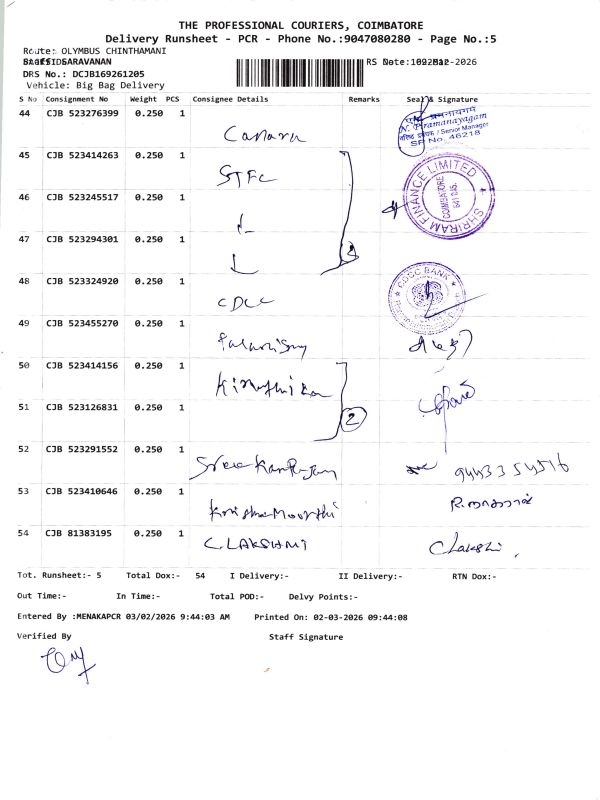 THE PROFESSIONAL COURIERS, COIMBATORE
Delivery Runsheet - PCR - Phone No.:9047080280 - Page No.:5
Route: OLYMBUS CHINTHAMANI
SARAVANAN
DRS No.: DCJB169261205
Vehicle: Big Bag Delivery
S No Consignment No Weight PCS Consignee Details Remarks Seal & Signature
44 CJB 523276399 0.250 1 Canara
N. Piramanayagam
/ Senior Manager
SP No. 46218
45 CJB 523414263 0.250 1 STFC
SHRIRAM FINANCE LIMITED
COIMBATORE
46 CJB 523245517 0.250 1
47 CJB 523294301 0.250 1
48 CJB 523324920 0.250 1 CDCC
CDCC BANK
49 CJB 523455270 0.250 1
50 CJB 523414156 0.250 1 Kiruthika
51 CJB 523126831 0.250 1 2
52 CJB 523291552 0.250 1
53 CJB 523410646 0.250 1 KrishnaMoorthi
54 CJB 81383195 0.250 1 C.LAKSHMI C Lakshi.
Tot. Runsheet:- 5 Total Dox:- 54 I Delivery:- II Delivery:- RTN Dox:-
Out Time:- In Time:- Total POD:- Delvy Points:-
Entered By :MENAKAPCR 03/02/2026 9:44:03 AM Printed On: 02-03-2026 09:44:08
Verified By Staff Signature